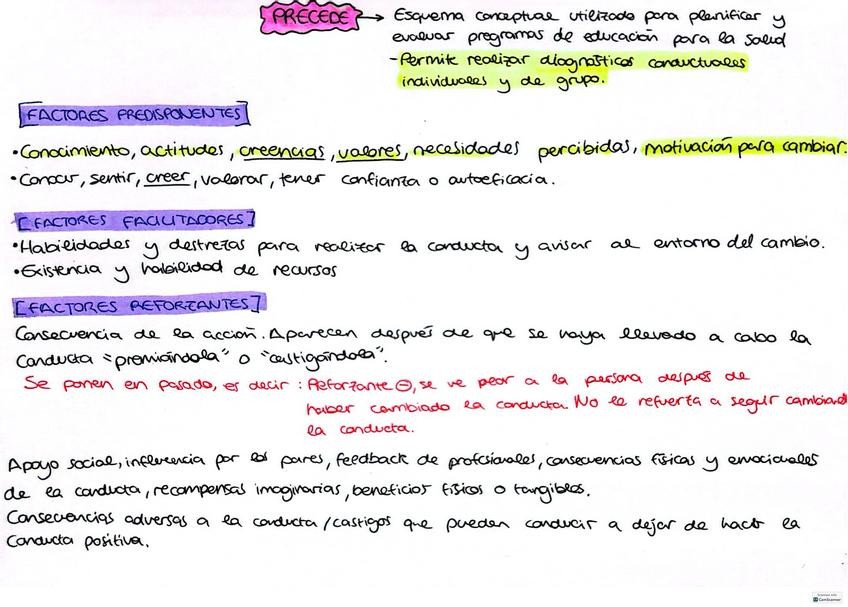 PRECEDE → Esquema conceptual utilizado para planificar y
evaluar programas de educación para la salud
-Permite realizar diagnósticos conductuales
individuales y de grupo.
[FACTORES PREDISPONENTES]
•Conocimiento, actitudes, creencias, valores, necesidades percibidas, motivación para cambiar.
•Conocer, sentir, creer, valorar, tener confianza o autoeficacia.
[FACTORES FACILITADORES]
•Habilidades y destrezas para realizar la conducta y avisar al entorno del cambio.
•Existencia y habilidad de recursos
[FACTORES REFORZANTES]
Consecuencia de la acción. Aparecen después de que se vaya llevado a cabo la
conducta "premiándola" o "castigándola".
Se ponen en pasado, es decir: Reforzante ⊖, se ve peor a la persona después de
haber cambiado la conducta. No le refuerza a seguir cambiando
la conducta.
Apoyo social, influencia por los pares, feedback de profesionales, consecuencias físicas y emocionales
de la conducta, recompensas imaginarias, beneficios físicos o tangibles.
Consecuencias adversas a la conducta/castigos que pueden conducir a dejar de hacer la
conducta positiva.
Scanned with
CamScanner